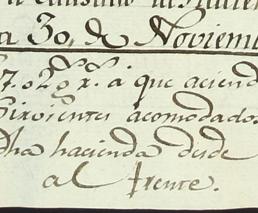 a 30,, de Noviem
7.028 r.s a que aciend
Sirvientes acomodados
dha hacienda desde
al frente.